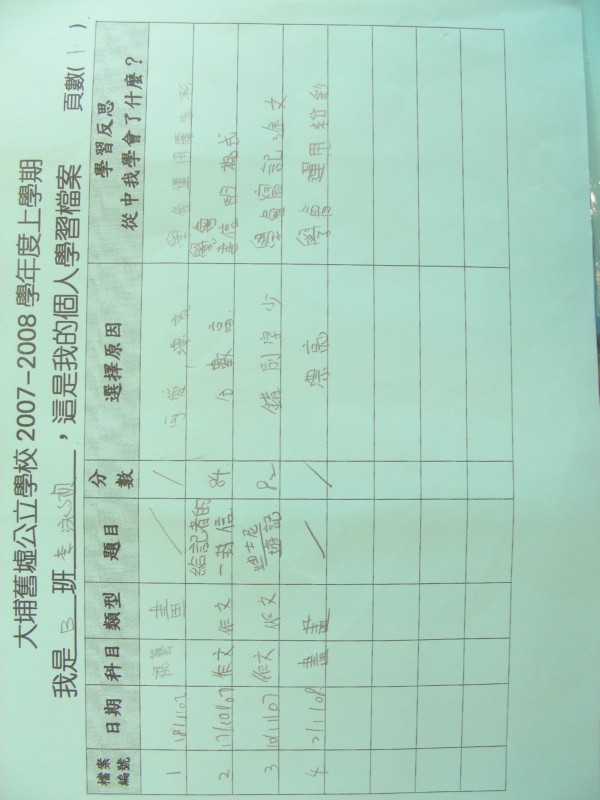 大埔舊墟公立學校 2007-2008 學年度上學期
我是 B 班 李 ，這是我的個人學習檔案 頁數( 1 )
檔案編號 日期 科目 類型 題目 分數 選擇原因 學習反思 從中我學會了什麼？
1 18/1/07 視藝 畫 / / 可愛、漂亮
2 17/10/07 作文 作文 給記者的一封信 84 分數高 學會書信的格式
3 作文 作文 迪士尼遊記 82 錯別字少 學會寫記 文
4 2/1/08 畫 畫 / / 漂亮 學會運用